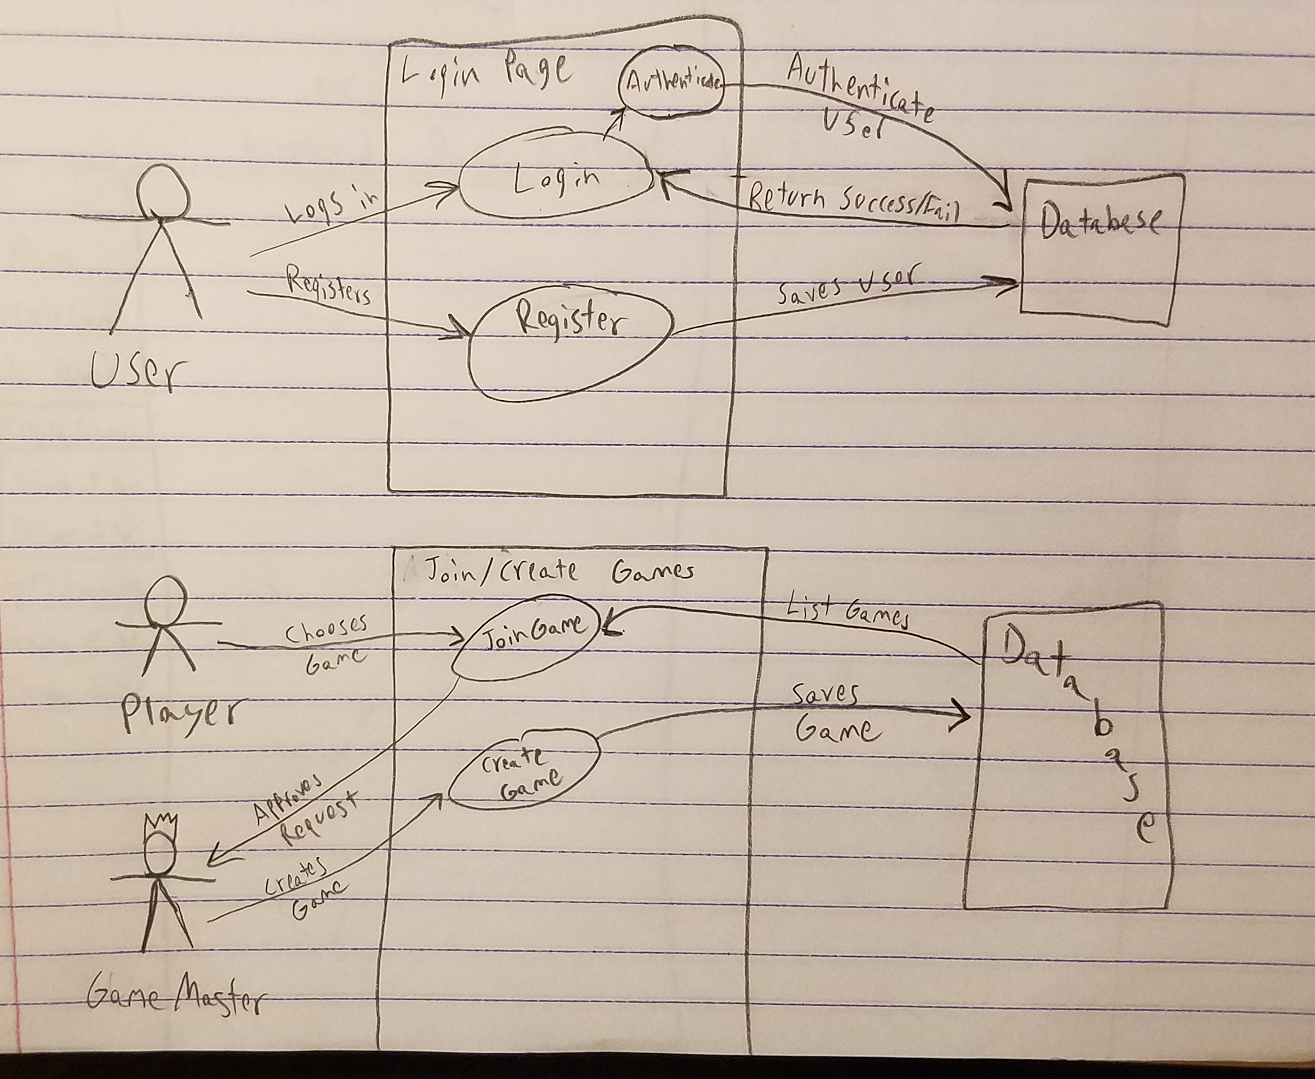 Login Page
Authenticate
Authenticate
User
Login
Logs in
Return Success/Fail
Database
Registers
Register
Saves User
User
Join/Create Games
List Games
Join Game
Chooses
Game
Database
Player
Saves
Game
Create
Game
Approves
Request
Creates
Game
Game Master